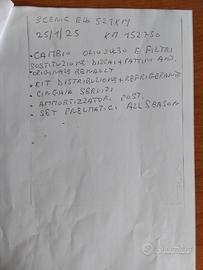 SCENIC E46 521KM
25/1/25 KM 152750
• CAMBIO OLIO 5W30 E FILTRI
SOSTITUZIONE DISCHI + PATTINI ANT.
• ORIGINALI RENAULT
• KIT DISTRIBUZIONE + REFRIGERANTE
• CINGHIA SERVIZI
• AMMORTIZZATORI POST.
• SET PNEUMATICI ALL SEASON
subito